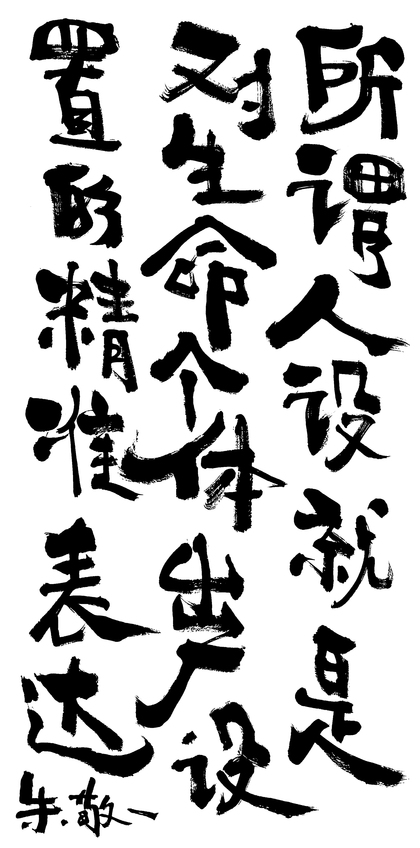 所谓人设就是
对生命个体出厂设
置的精准表达
朱敬一